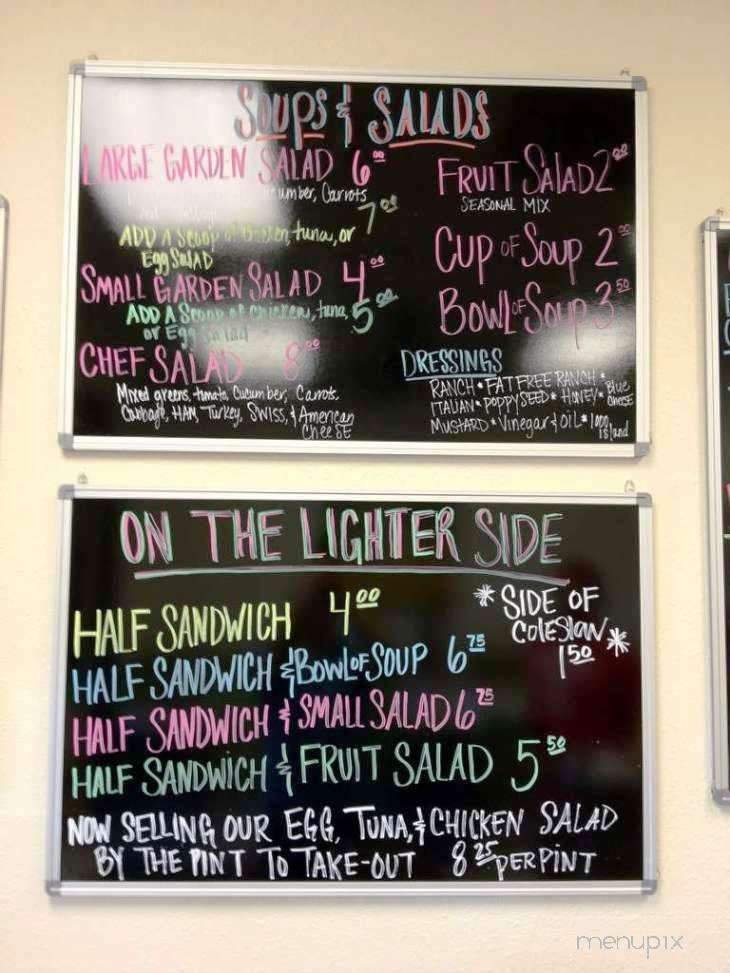 SOUPS & SALADS
LARGE GARDEN SALAD 6⁰⁰
cumber, Carrots
ADD A Scoop of Chicken, tuna, or 7⁰⁰
Egg SALAD
SMALL GARDEN SALAD 4⁰⁰
ADD A Scoop of chicken, tuna, 5⁰⁰
or Egg Salad
CHEF SALAD 8⁰⁰
Mixed greens, tomato, Cucumber, Carrots,
Cabbage, HAM, Turkey, SWISS, & American
CheESE
FRUIT SALAD 2⁰⁰
SEASONAL MIX
CUP OF SOUP 2⁰⁰
BOWL OF SOUP 3⁵⁰
DRESSINGS
RANCH * FAT FREE RANCH * Blue CHEESE
ITALIAN * POPPYSEED * HONEY
MUSTARD * Vinegar & OIL * 1000 Island
ON THE LIGHTER SIDE
HALF SANDWICH 4⁰⁰
HALF SANDWICH & BOWL OF SOUP 6⁷⁵
HALF SANDWICH & SMALL SALAD 6⁷⁵
HALF SANDWICH & FRUIT SALAD 5⁵⁰
* SIDE OF
COLESLAW *
1⁵⁰
NOW SELLING OUR EGG, TUNA, & CHICKEN SALAD
BY THE PINT TO TAKE-OUT 8²⁵ PER PINT
menupix